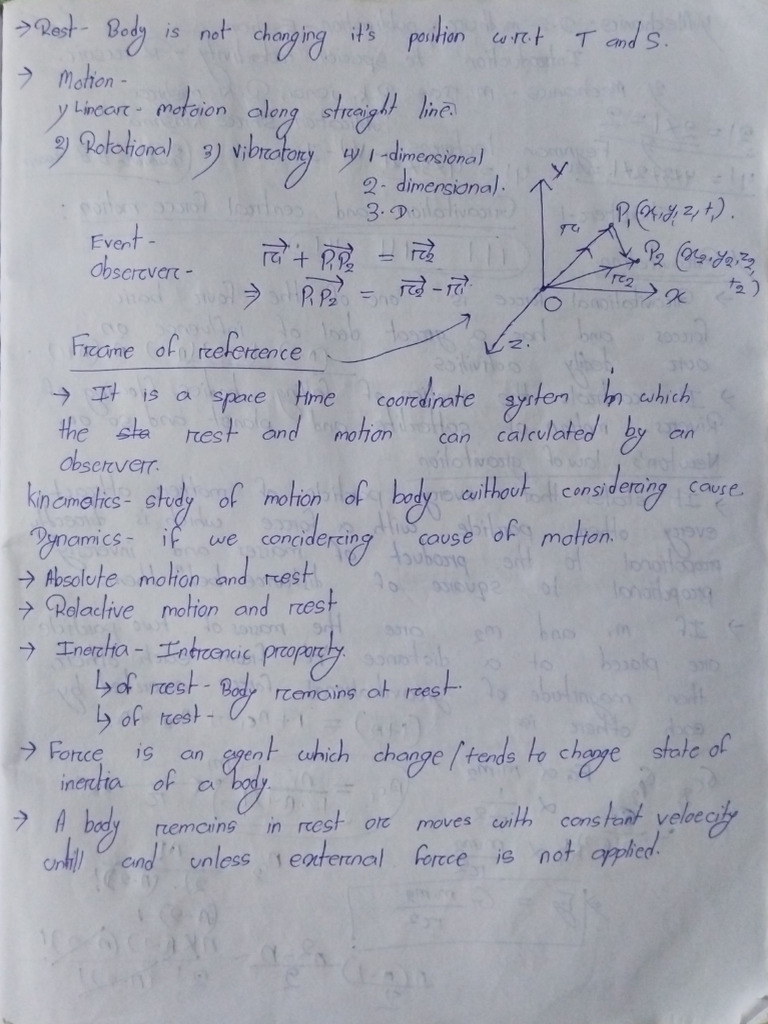 → Rest- Body is not changing it's position w.r.t T and S.
→ Motion-
1) Linear- motoion along straight line.
2) Rotational 3) vibratory 4) 1-dimensional
2- dimensional.
3. D
Y
P₁ (x₁, y₁, z₁, t₁).
Event-
Observer-
r₁⃗ + P₁P₂⃗ = r₂⃗
⇒ P₁P₂⃗ = r₂⃗ - r₁⃗
r₁
P₂ (x₂, y₂, z₂, t₂)
r₂
O
x
z.
Frame of reference
→ It is a space time coordinate system in which
the rest and motion can calculated by an
observer.
Kinametics- study of motion of body without considering cause.
Dynamics- if we concidering cause of motion.
→ Absolute motion and rest
→ Relactive motion and rest
→ Inertia- Intrencic proparty.
↳ of rest- Body remains at rest.
↳ of rest-
→ Force is an agent which change/tends to change state of
inertia of a body.
→ A body remains in rest or moves with constant velocity
untill and unless external force is not applied.